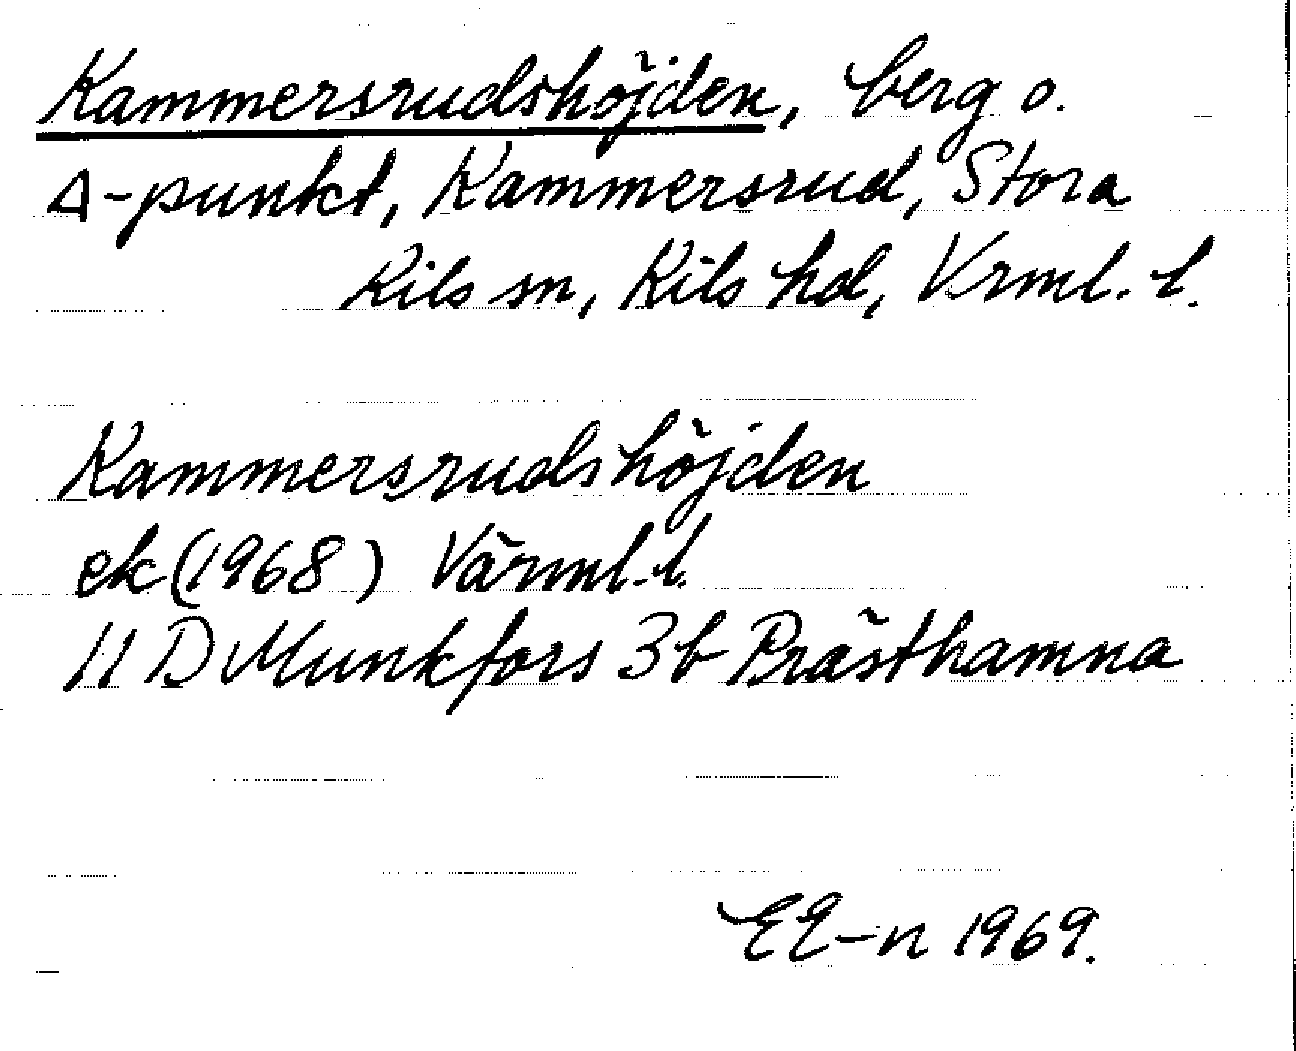 Kammersrudshöjden, berg o.
Δ-punkt, Kammersrud, Stora
Kils sn, Kils hd, Vrml. l.
Kammersrudshöjden
ek (1968) Värml. l.
11 D Munkfors 3b Prästhamna
EE-n 1969.